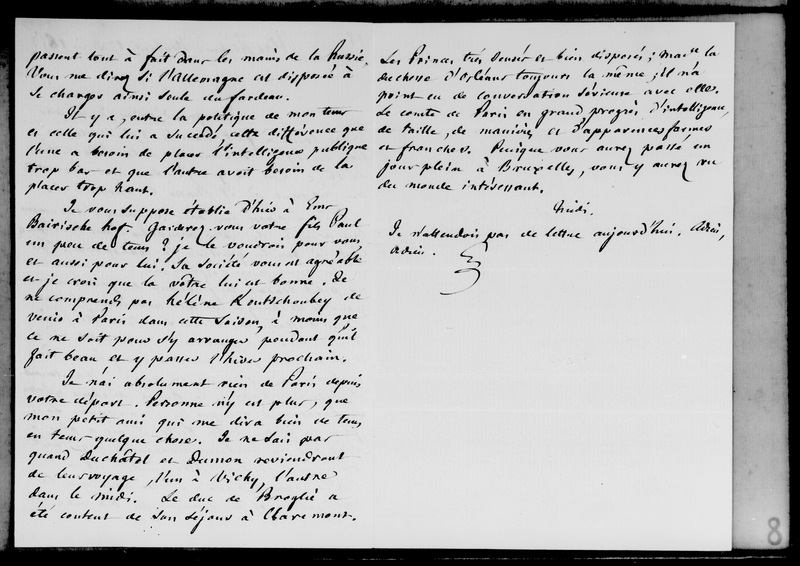 passent tout à fait dans les mains de la Russie.
Vous me direz si l'allemagne est disposée à
se charger ainsi seule du fardeau.
Il y a, entre la politique de mon tems
et celle qui lui a succédé cette différence que
l'une a besoin de placer l'intelligence publique
trop bas et que l'autre avait besoin de la
placer trop haut.
Je vous suppose établie d'hier à Ems
Bairische hof. Garderez-vous votre fils Paul
un peu de tems ? je le voudrois pour vous
et aussi pour lui. Sa société vous est agréable
et je crois que la vôtre lui est bonne. Je
ne comprends pas hélène Koutschoubey de
venir à Paris dans cette saison, à moins que
ce ne soit pour s'y arranger pendant qu'il
fait beau et y passer l'hiver prochain.
Je n'ai absolument rien de Paris depuis
votre départ. Personne n'y est plus, que
mon petit ami qui me dira bien de tems
en tems quelque chose. Je ne sais pas
quand Duchâtel et Dumon reviendront
de leur voyage, l'un à Vichy, l'autre
dans le midi. Le duc de Broglie a
été content de son séjour à Claremont.
Les Princes très sensés et bien disposés ; mais la
duchesse d'Orléans toujours la même ; il n'a
point eu de conversation sérieuse avec elle.
Le comte de Paris en grand progrès d'intelligence,
de taille, de manières et d'apparences fermes
et franches. Puisque vous avez passé un
jour plein à Bruxelles, vous y aurez vu
du monde intéressant.
Midi.
Je n'attendois pas de lettre aujourd'hui. Adieu,
adieu.
8